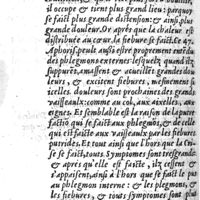 il occupe & tient plus grand lieu: parquoy
se faict plus grande distension: & ainsi, plus
grande douleur. Or apres que la chaleur est
distribuée au cœur, la fiebure se faict. Ce 47.
Aphoris. peult aussi estre proprement entendu
des phlegmons externes: lesquels, quand ilz
suppurēt, amassent, & accueillēt grandes douleurs,
& excitent fiebures, mesmement si
icelles douleurs sont prochaines des grands
vaisseaulx: comme au col, aux aixelles, aux
eignes. Et semblable est la raison de la putrefactiō
qui se faict au phlegmon, & de celle
qui est faicte aux vaisseaulx par les fiebures
putrides. Et tout ainsi à l'hors que la Crise
se faict, tous Symptomes sont tresgrands
& apres qu'elle est faicte, ilz cessent &
s'appaisent, ainsi à l'hors que se faict le pus
au phlegmon interne: & les phlegmons, &
les fiebures, & tous Symptomes sont plus